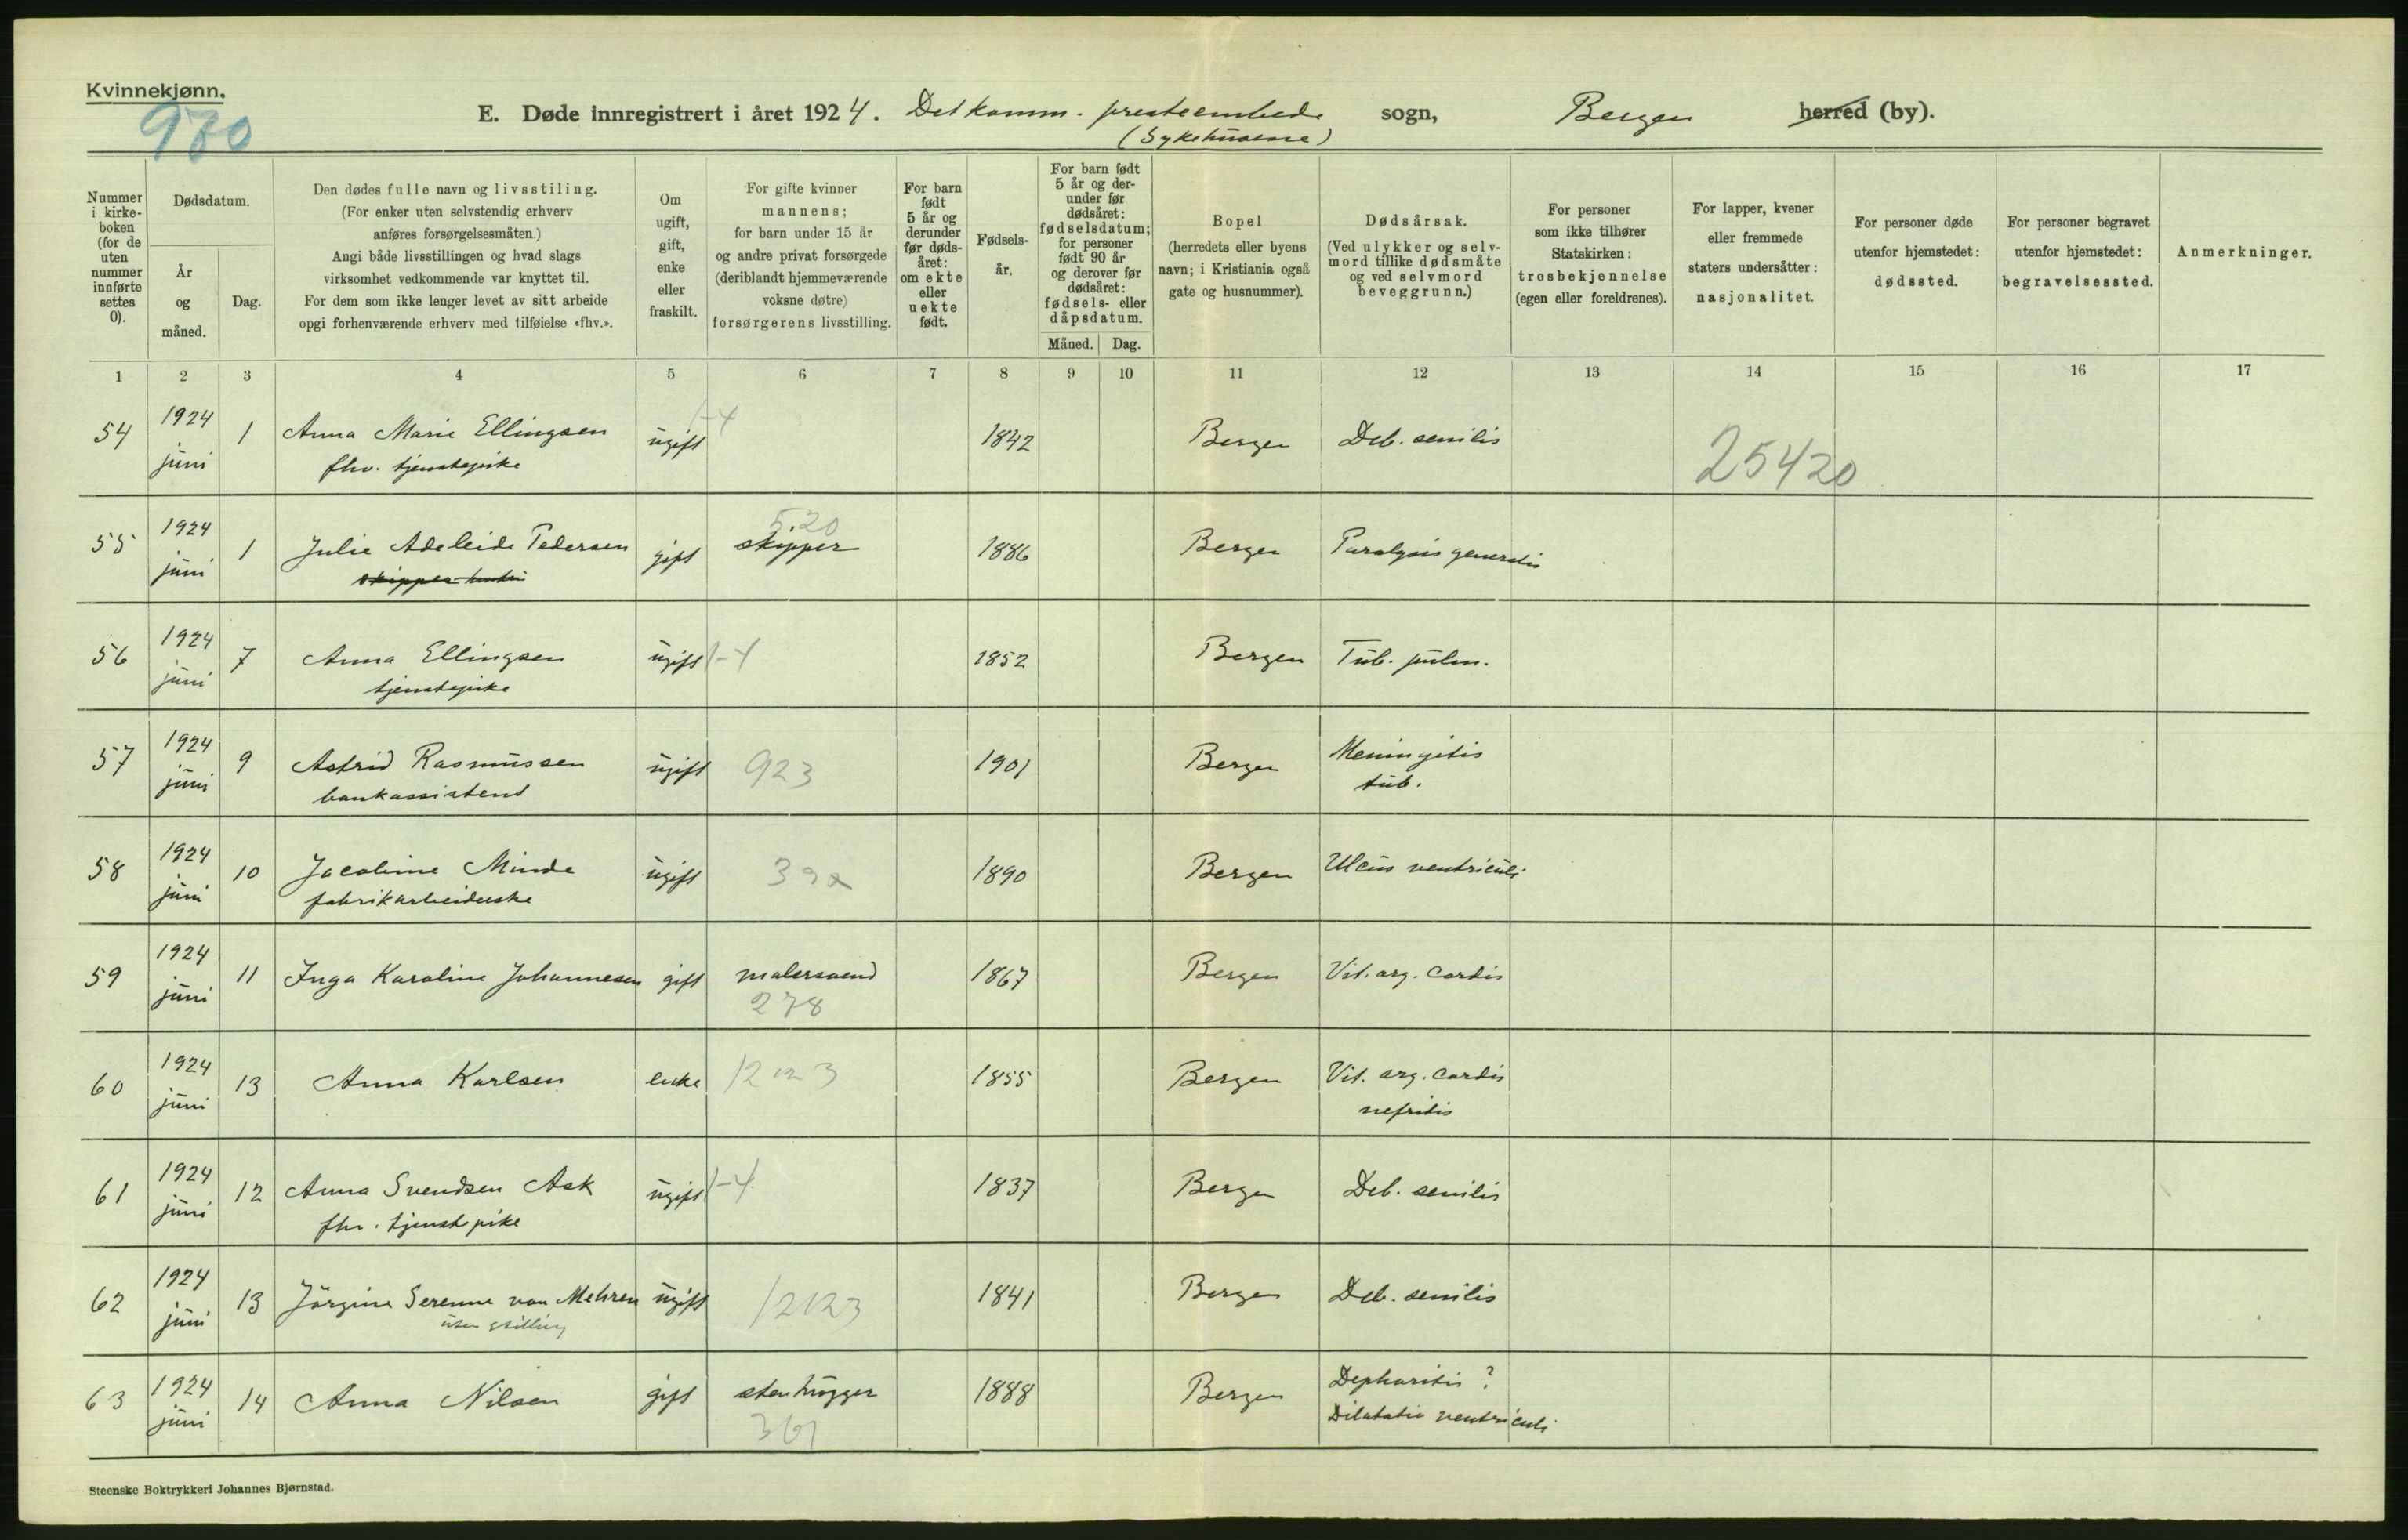 Kvinnekjønn.
970
E. Døde innregistrert i året 1924. Det komm. presteembede sogn, Bergen herred (by).
(Sykehusene)
Nummer i kirke-boken (for de uten nummer innførte settes 0).
Dødsdatum.
År og måned.
Dag.
Den dødes fulle navn og livsstiling.
(For enker uten selvstendig erhverv
anføres forsørgelsesmåten.)
Angi både livsstillingen og hvad slags
virksomhet vedkommende var knyttet til.
For dem som ikke lenger levet av sitt arbeide
opgi forhenværende erhverv med tilføielse «fhv.».
Om ugift, gift, enke eller fraskilt.
For gifte kvinner
mannens;
for barn under 15 år
og andre privat forsørgede
(deriblandt hjemmeværende
voksne døtre)
forsørgerens livsstilling.
For barn født 5 år og derunder før døds-året: om ekte eller uekte født.
Fødsels-år.
For barn født 5 år og der-under før dødsåret: fødselsdatum; for personer født 90 år og derover før dødsåret: fødsels- eller dåpsdatum.
Måned. Dag.
Bopel
(herredets eller byens
navn; i Kristiania også
gate og husnummer).
Dødsårsak.
(Ved ulykker og selv-
mord tillike dødsmåte
og ved selvmord
beveggrunn.)
For personer
som ikke tilhører
Statskirken:
trosbekjennelse
(egen eller foreldrenes).
For lapper, kvener
eller fremmede
staters undersåtter:
nasjonalitet.
For personer døde
utenfor hjemstedet:
dødssted.
For personer begravet
utenfor hjemstedet:
begravelsessted.
Anmerkninger.
1 2 3 4 5 6 7 8 9 10 11 12 13 14 15 16 17
54 1924 juni 1 Anna Marie Ellingsen ugift 1-4 1842 Bergen Deb. senilis 25420
fhv. tjenestepike
55 1924 juni 1 Julie Adeleide Pedersen gift 520 skipper 1886 Bergen Paralysis generalis
skipper hustru
56 1924 juni 7 Anna Ellingsen ugift 1-4 1852 Bergen Tub. pulm.
tjenestepike
57 1924 juni 9 Astrid Rasmussen ugift 923 1901 Bergen Meningitis
bankassistent tub.
58 1924 juni 10 Jacobine Minde ugift 1890 Bergen Ulcus ventriculi
fabrikarbeiderske
59 1924 juni 11 Inga Karoline Johannesen gift malersvend 1867 Bergen Vit. org. cordis
278
60 1924 juni 13 Anna Karlsen enke 12123 1855 Bergen Vit. org. cordis
nefritis
61 1924 juni 12 Anna Svendsen Ask ugift 1-4 1837 Bergen Deb. senilis
fhv. tjenestpike
62 1924 juni 13 Jörgine Serenne von Mehren ugift 12123 1841 Bergen Deb. senilis
uten stilling
63 1924 juni 14 Anna Nilsen gift stenhugger 1888 Bergen Dephoritis ?
361 Dilatatio ventriculi
Steenske Boktrykkeri Johannes Bjørnstad.